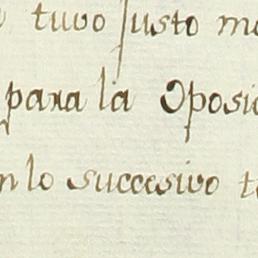 tuvo justo mo
para la Oposic
nlo succesivo t